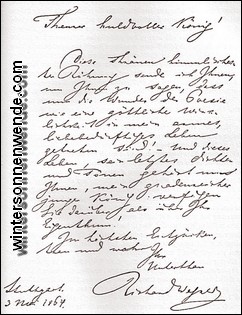 Theurer huldvoller König!
Diese Thränen himmlischer
ter Rührung sende ich Ihnen,
um Ihnen zu sagen, dass
nun die Wunder der Poesie
wie eine göttliche Wirk-
lichkeit in mein armes,
liebebedürftiges Leben
getreten sind! – Und dieses
Leben, sein letztes Dichten
und Tönen gehört nun
Ihnen, mein gnadenreicher
junger König: verfügen
Sie darüber als über Ihr
Eigenthum!
Im höchsten Entzücken,
treu und wahr
Ihr
Unterthan
Richard Wagner
Stuttgart
3 Mai 1864.
wintersonnenwende.com